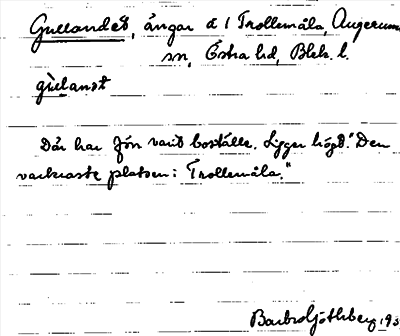 Gullandet, ängar å 1 Trollemåla, Augerums
sn, Östra hd, Blek. l.
gùlanst
Där har förr varit boställe. Ligger högt. "Den
vackraste platsen i Trollemåla."
Barbro Göthberg 193